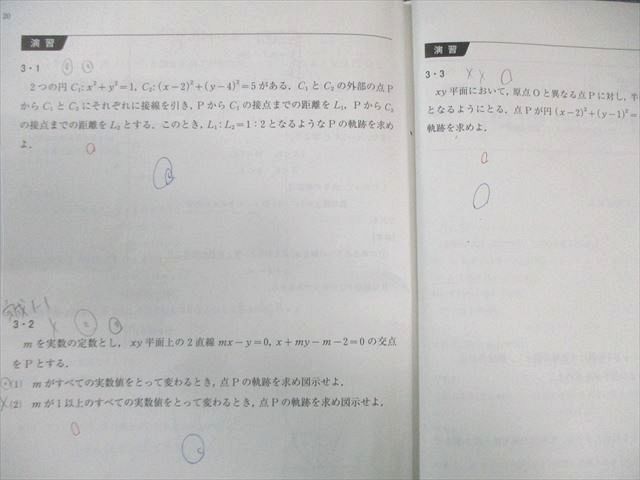 20
演習
3・1
2つの円 C₁: x²+y²=1, C₂: (x−2)²+(y−4)²=5 がある. C₁ と C₂ の外部の点P
から C₁ と C₂ にそれぞれに接線を引き, P から C₁ の接点までの距離を L₁, P から C₂
の接点までの距離を L₂ とする. このとき, L₁: L₂=1:2 となるような P の軌跡を求め
よ.
3・2
m を実数の定数とし, xy 平面上の 2 直線 mx−y=0, x+my−m−2=0 の交点
を P とする.
(1) m がすべての実数値をとって変わるとき, 点 P の軌跡を求め図示せよ.
(2) m が 1 以上のすべての実数値をとって変わるとき, 点 P の軌跡を求め図示せよ.
演習
3・3
xy 平面において, 原点 O と異なる点 P に対し, 半
となるようにとる. 点 P が円 (x−2)²+(y−1)²=
軌跡を求めよ.